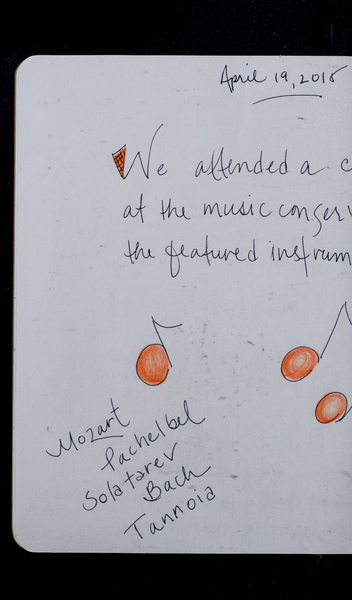 April 19, 2018
We attended a c
at the music conserv
the featured instrum
Mozart
Pachelbel
Solatarev
Bach
Tannoia